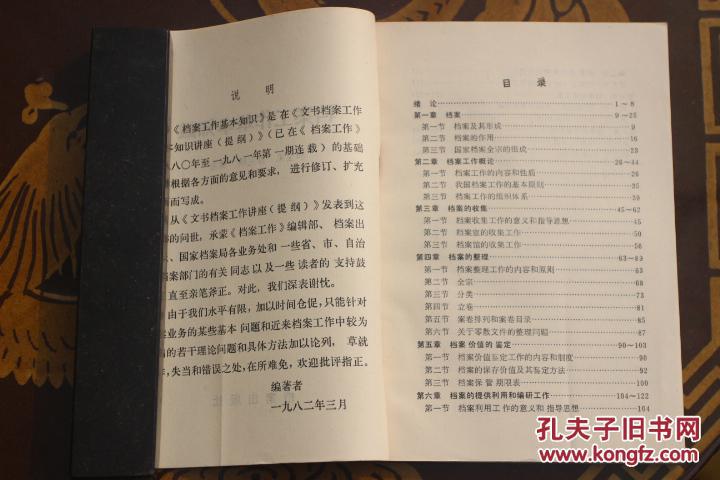 说　明
《档案工作基本知识》是在《文书档案工作
知识讲座（提纲）》（已在《档案工作》
八〇年至一九八一年第一期连载）的基础
根据各方面的意见和要求，进行修订、扩充
而写成。
从《文书档案工作讲座（提纲）》发表到这
的问世，承蒙《档案工作》编辑部、档案出
、国家档案局各业务处和一些省、市、自治
档案部门的有关同志以及一些读者的支持鼓
直至亲笔斧正。对此，我们深表谢忱。
由于我们水平有限，加以时间仓促，只能针对
业务的某些基本问题和近来档案工作中较为
的若干理论问题和具体方法加以论列，草就
，失当和错误之处，在所难免，欢迎批评指正。
编著者
一九八二年三月
目　录
绪　论……1—8
第一章　档案……9—25
第一节　档案及其形成……9
第二节　档案的作用……16
第三节　国家档案全宗的组成……23
第二章　档案工作概论……26—44
第一节　档案工作的内容和性质……26
第二节　我国档案工作的基本原则……30
第三节　档案工作的组织体系……39
第三章　档案的收集……45—62
第一节　档案收集工作的意义和指导思想……45
第二节　档案室的收集工作……49
第三节　档案馆的收集工作……56
第四章　档案的整理……63—89
第一节　档案整理工作的内容和原则……63
第二节　全宗……68
第三节　分类……73
第四节　立卷……81
第五节　案卷排列和案卷目录……85
第六节　关于零散文件的整理问题……87
第五章　档案价值的鉴定……90—103
第一节　档案价值鉴定工作的内容和制度……90
第二节　档案的保存价值及其鉴定方法……92
第三节　档案保管期限表……100
第六章　档案的提供利用和编研工作……104—122
第一节　档案利用工作的意义和指导思想……104
孔夫子旧书网